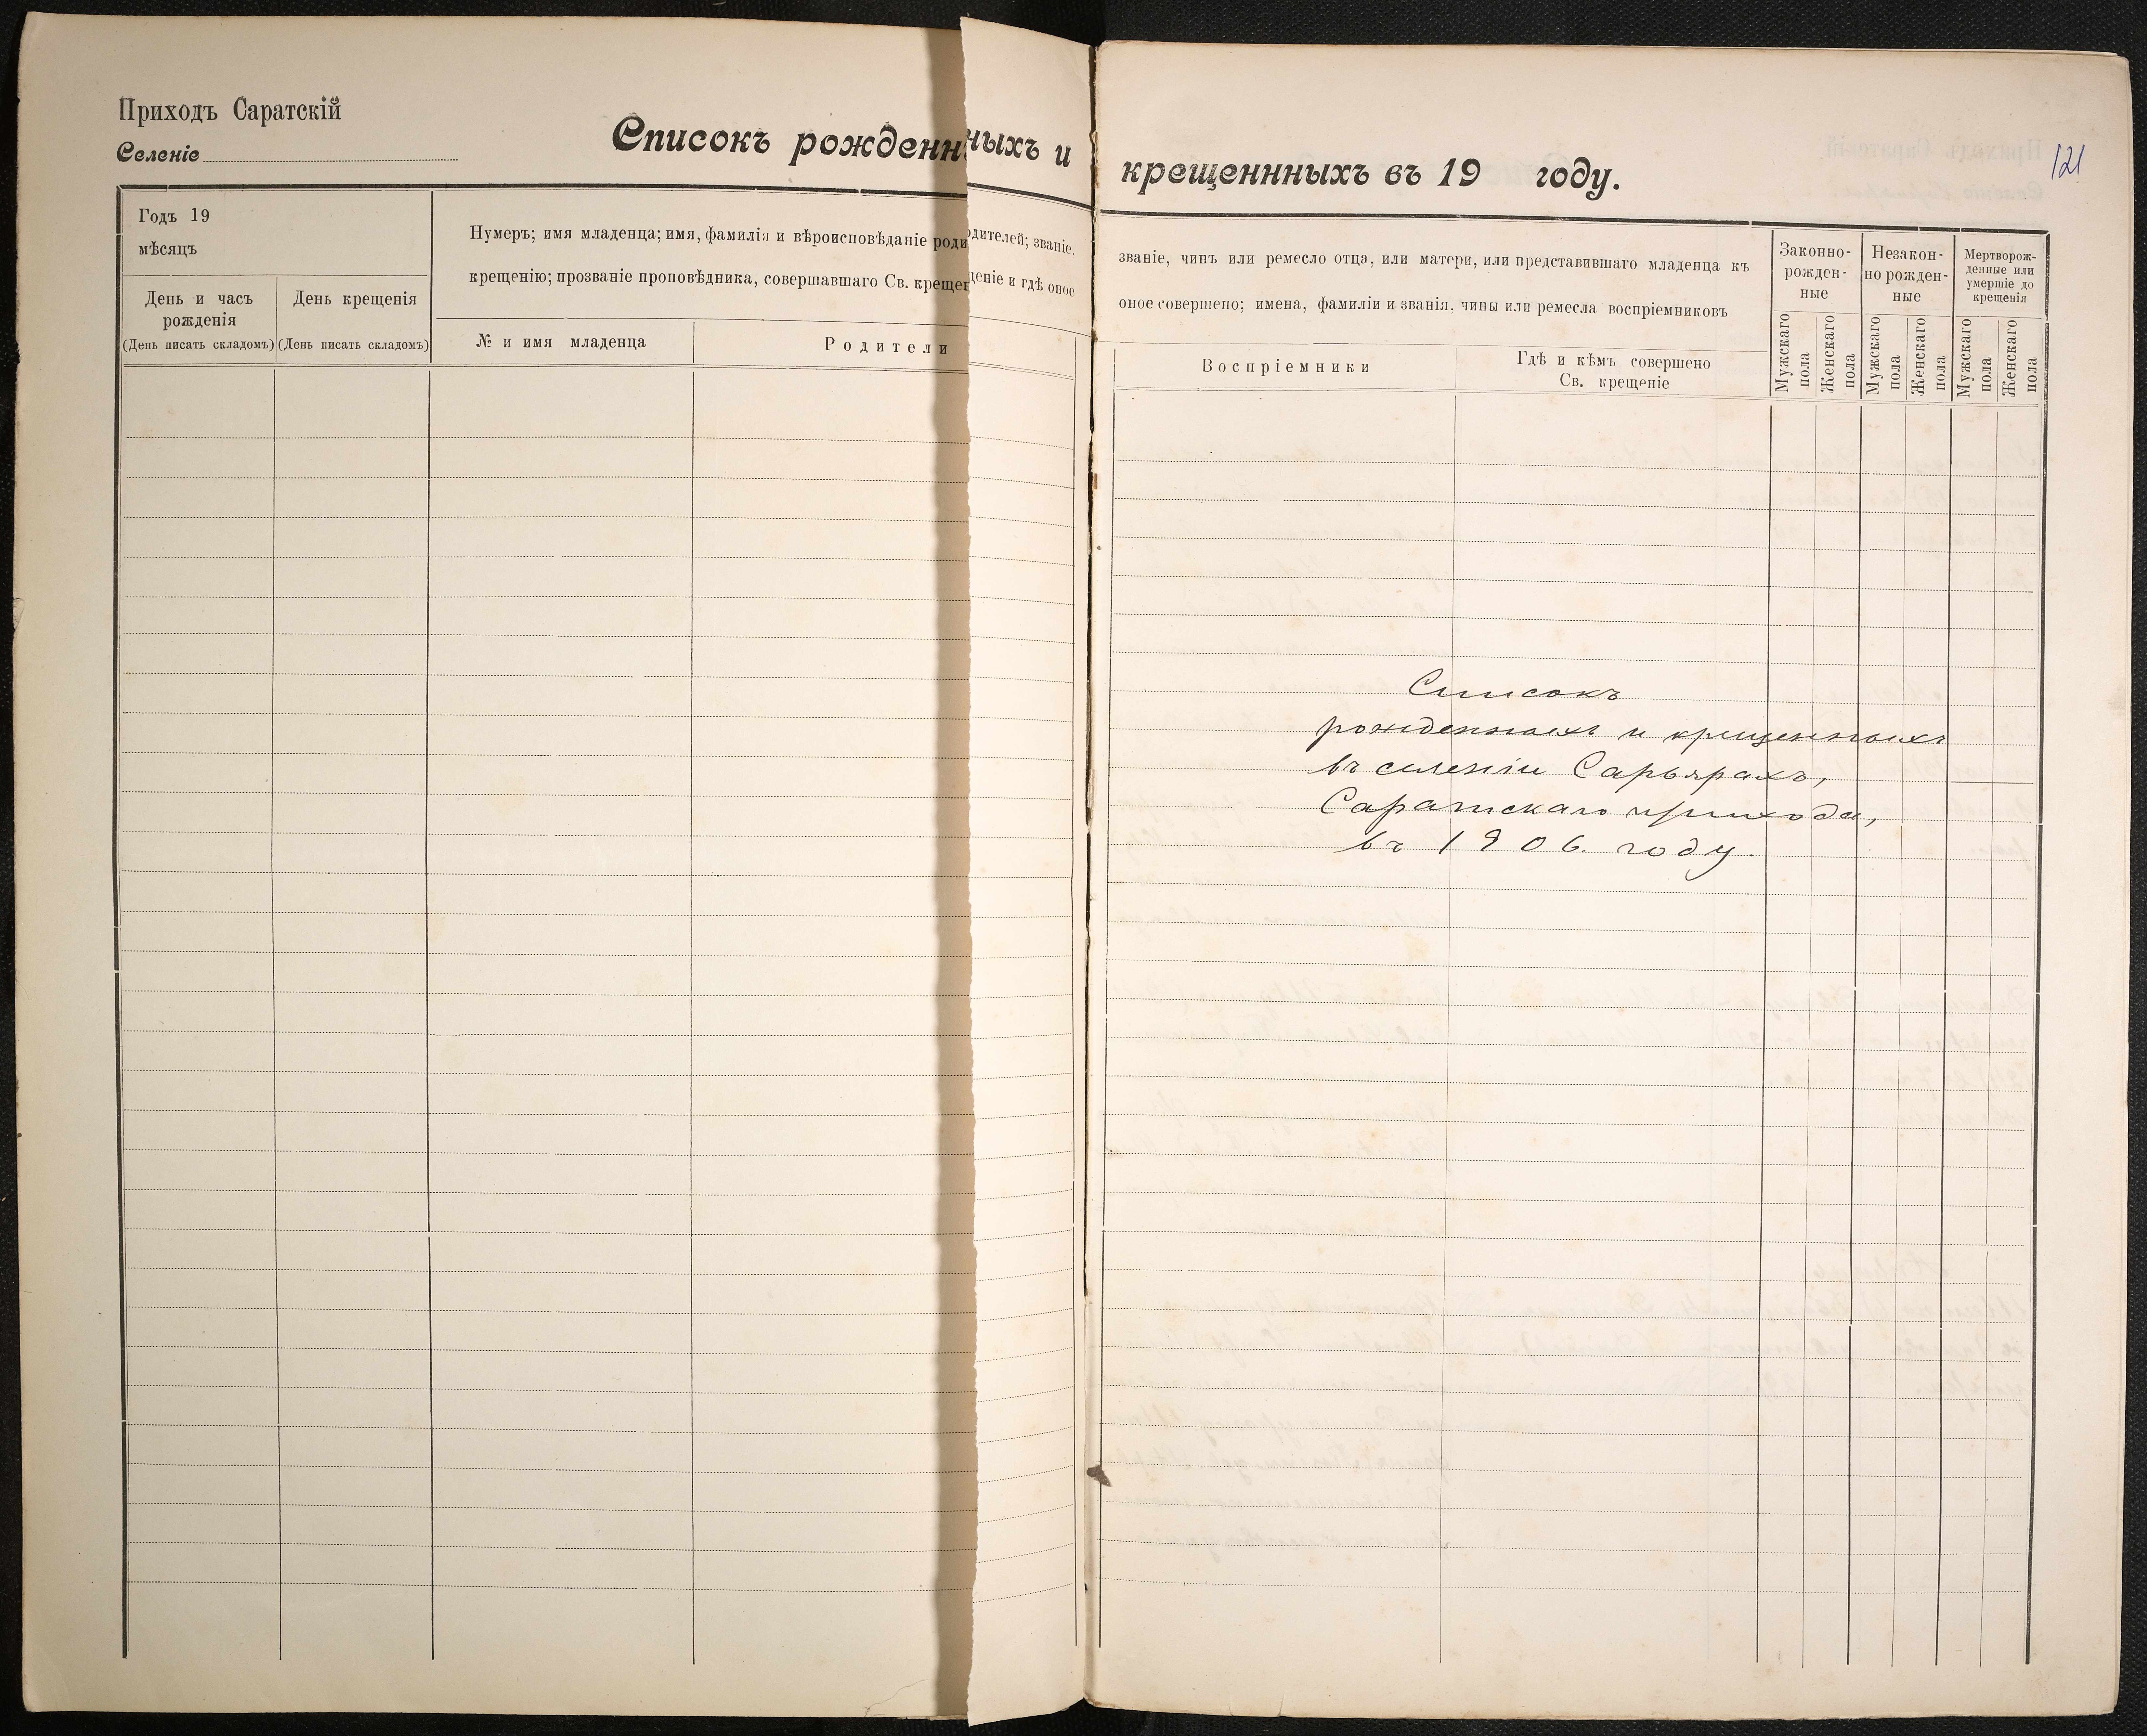 Приходъ Саратскій
Селеніе
Списокъ рожденныхъ и
Годъ 19
мѣсяцъ
Нумеръ; имя младенца; имя, фамилія и вѣроисповѣданіе роди
крещенію; прозваніе проповѣдника, совершавшаго Св. крещен
День и часъ
рожденія
(День писать складомъ)
День крещенія
(День писать складомъ)
№ и имя младенца
Родители
одителей; званіе,
щеніе и гдѣ оное
крещеннныхъ въ 19 году.
121
званіе, чинъ или ремесло отца, или матери, или представившаго младенца къ
оное совершено; имена, фамиліи и званія, чины или ремесла воспріемниковъ
Воспріемники
Гдѣ и кѣмъ совершено
Св. крещеніе
Законно-
рожден-
ные
Незакон-
но рожден-
ные
Мертворож-
денные или
умершіе до
крещенія
Мужскаго
пола
Женскаго
пола
Мужскаго
пола
Женскаго
пола
Мужскаго
пола
Женскаго
пола
Списокъ
рожденныхъ и крещенныхъ
въ селеніи Сарьярахъ,
Саратскаго прихода,
въ 1906 году.